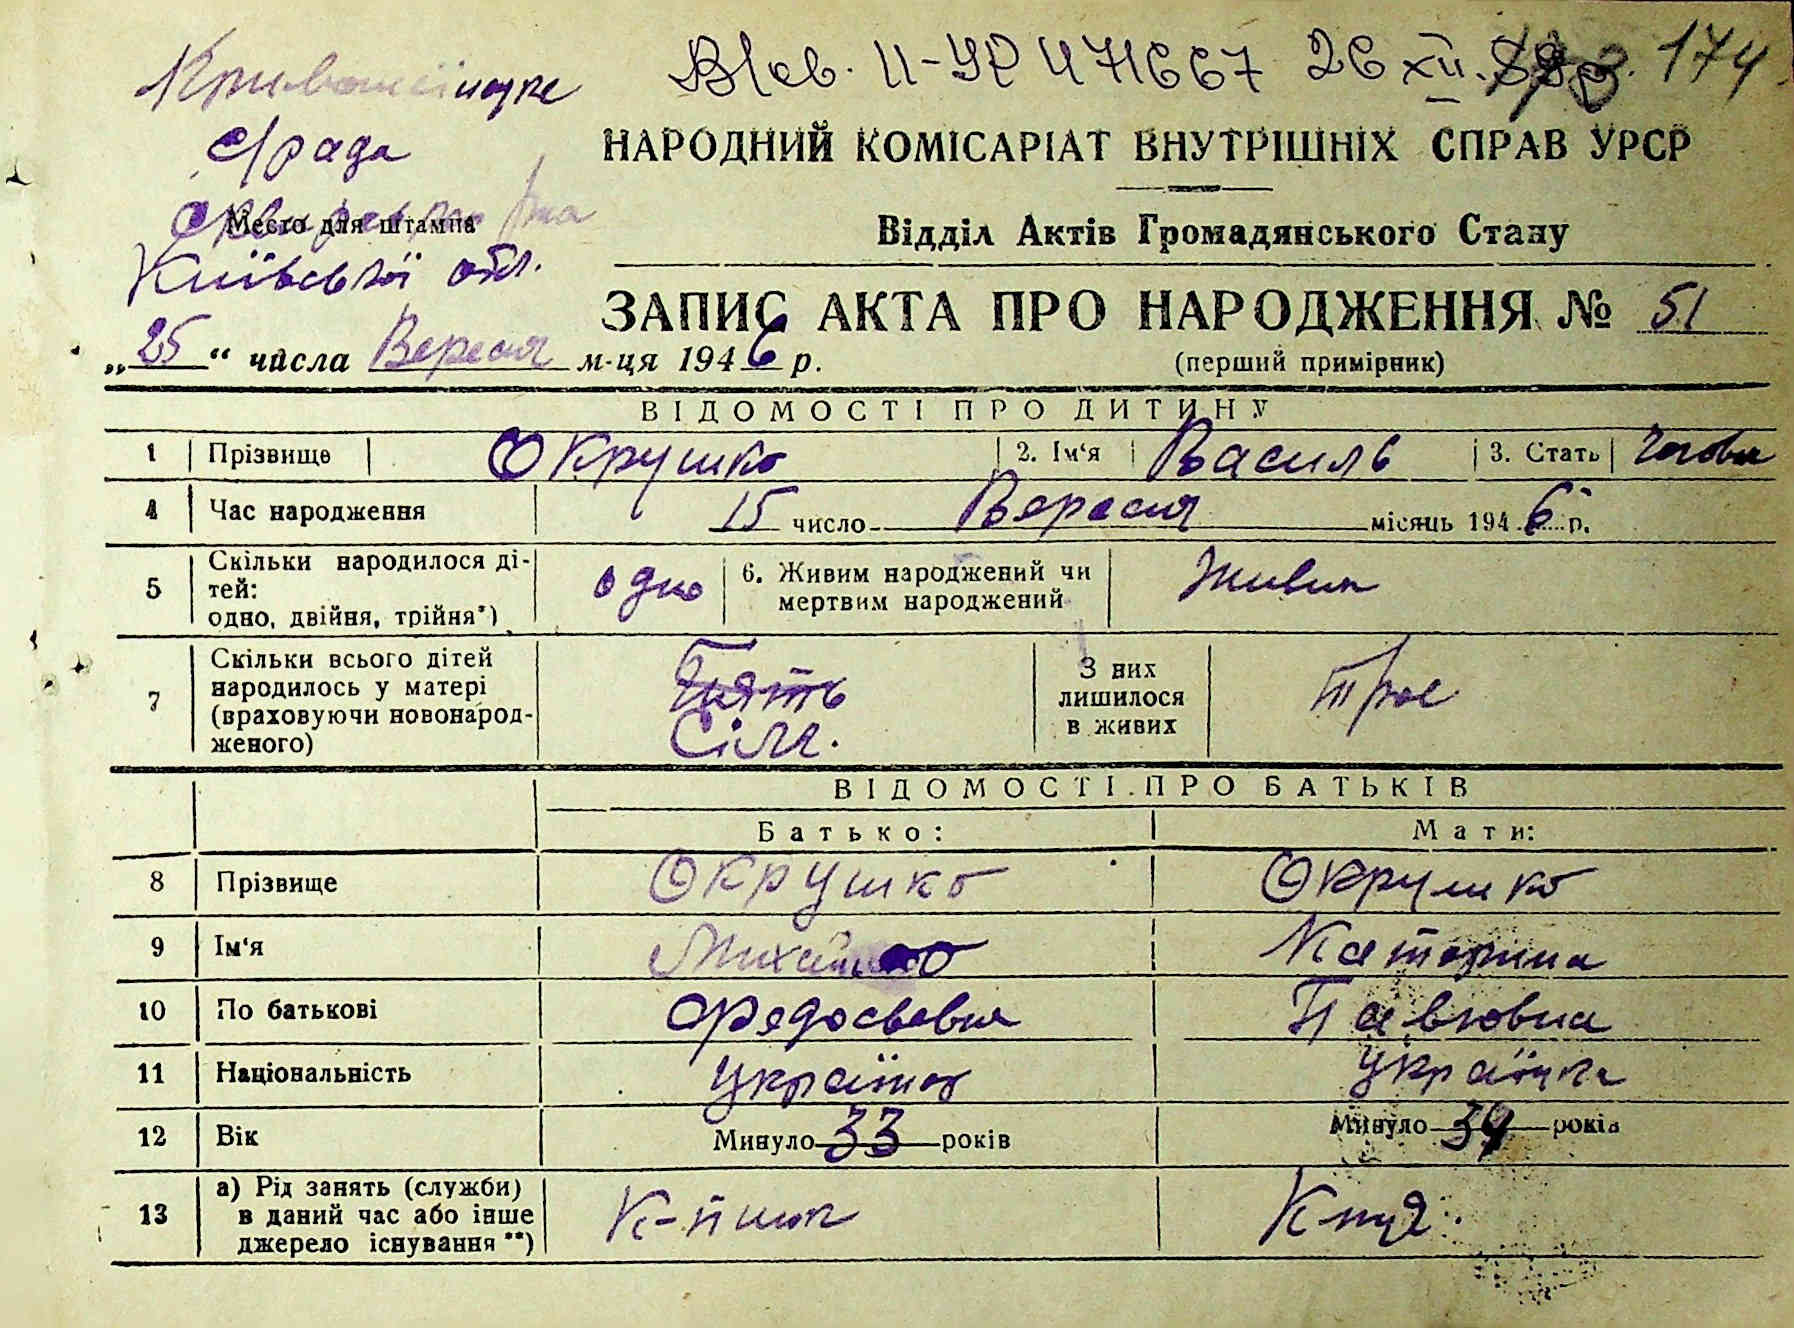 II-УР 471667 26 XII. 174
с/рада
Место для штампа
Київської обл.
НАРОДНИЙ КОМІСАРІАТ ВНУТРІШНІХ СПРАВ УРСР
Відділ Актів Громадянського Стану
ЗАПИС АКТА ПРО НАРОДЖЕННЯ № 51
(перший примірник)
„25“ числа Вересня м-ця 1946 р.
ВІДОМОСТІ ПРО ДИТИНУ
1 Прізвище Окрушко 2. Ім‘я Василь 3. Стать
4 Час народження 15 число Вересня місяць 1946 р.
5 Скільки народилося ді-
тей:
одно, двійня, трійня*) одно 6. Живим народжений чи
мертвим народжений Живим
7 Скільки всього дітей
народилось у матері
(враховуючи новонарод-
женого) Сім. З них
лишилося
в живих Троє
ВІДОМОСТІ ПРО БАТЬКІВ
Батько: Мати:
8 Прізвище Окрушко Окрушко
9 Ім‘я Михайло Катерина
10 По батькові Павловна
11 Національність українка
12 Вік Минуло 33 років Минуло 34 років
13 а) Рід занять (служби)
в даний час або інше
джерело існування **)